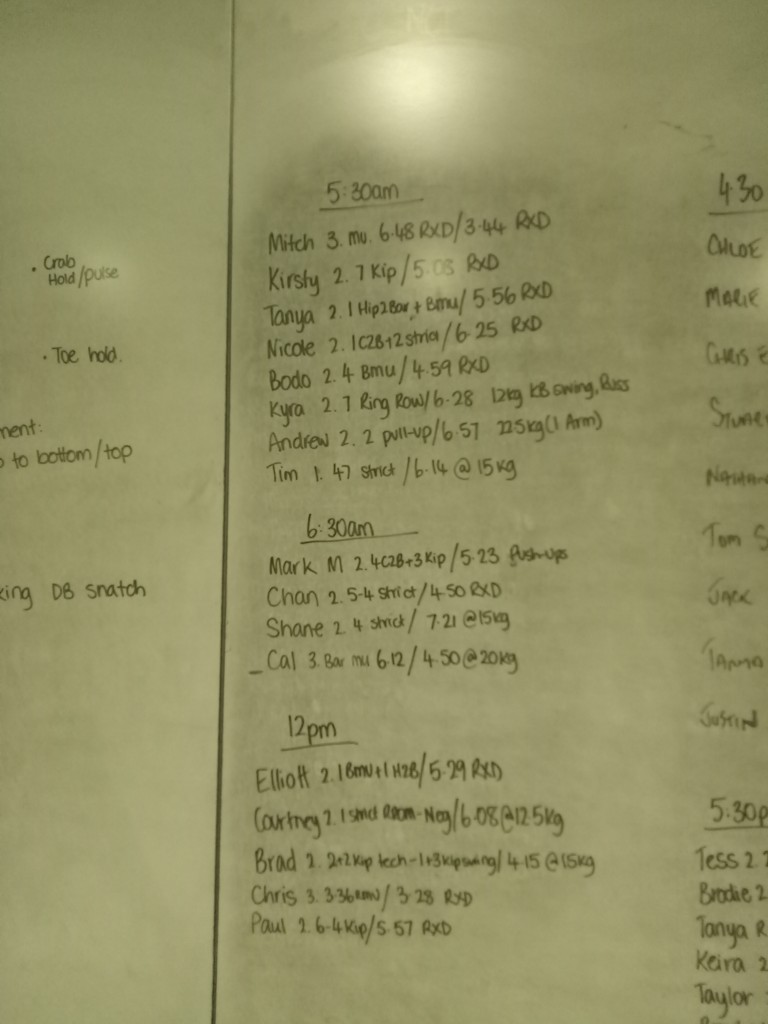 • Crab
Hold/pulse
• Toe hold.
ment:
to bottom/top
king DB snatch
5:30am
Mitch 3. mu. 6.48 RXD/3.44 RXD
Kirsty 2. 7 Kip/5.08 RXD
Tanya 2. 1 Hip2Bar + Bmu/5.56 RXD
Nicole 2. 1C2B+2strict/6.25 RXD
Bodo 2. 4 Bmu/4.59 RXD
Kyra 2. 7 Ring Row/6.28 12kg KB swing, Russ
Andrew 2. 2 pull-up/6.57 22.5kg(1 Arm)
Tim 1. 47 strict/6.14 @ 15kg
6:30am
Mark M 2. 4C2B+3Kip/5.23 Push-ups
Chan 2. 5-4 strict/4.50 RXD
Shane 2 4 strict/ 7.21 @15kg
Cal 3. Bar mu 6.12/4.50@20kg
12pm
Elliott 2. 1Bmu+1H2B/5.29 RXD
Courtney 2. 1 strict -Neg/6.08@12.5kg
Brad 2. 2+2Kip tech-1+3kipswing/4.15 @15kg
Chris 3. 3.36 /3.28 RXD
Paul 2. 6-4 Kip/5.57 RXD
4.30
CHLOE
MARIE
CHRIS E
STUAR
NATHAN
TOM S
JACK
TANYA
JUSTIN
5:30p
Tess 2.
Brodie 2
Tanya R
Keira 2
Taylor